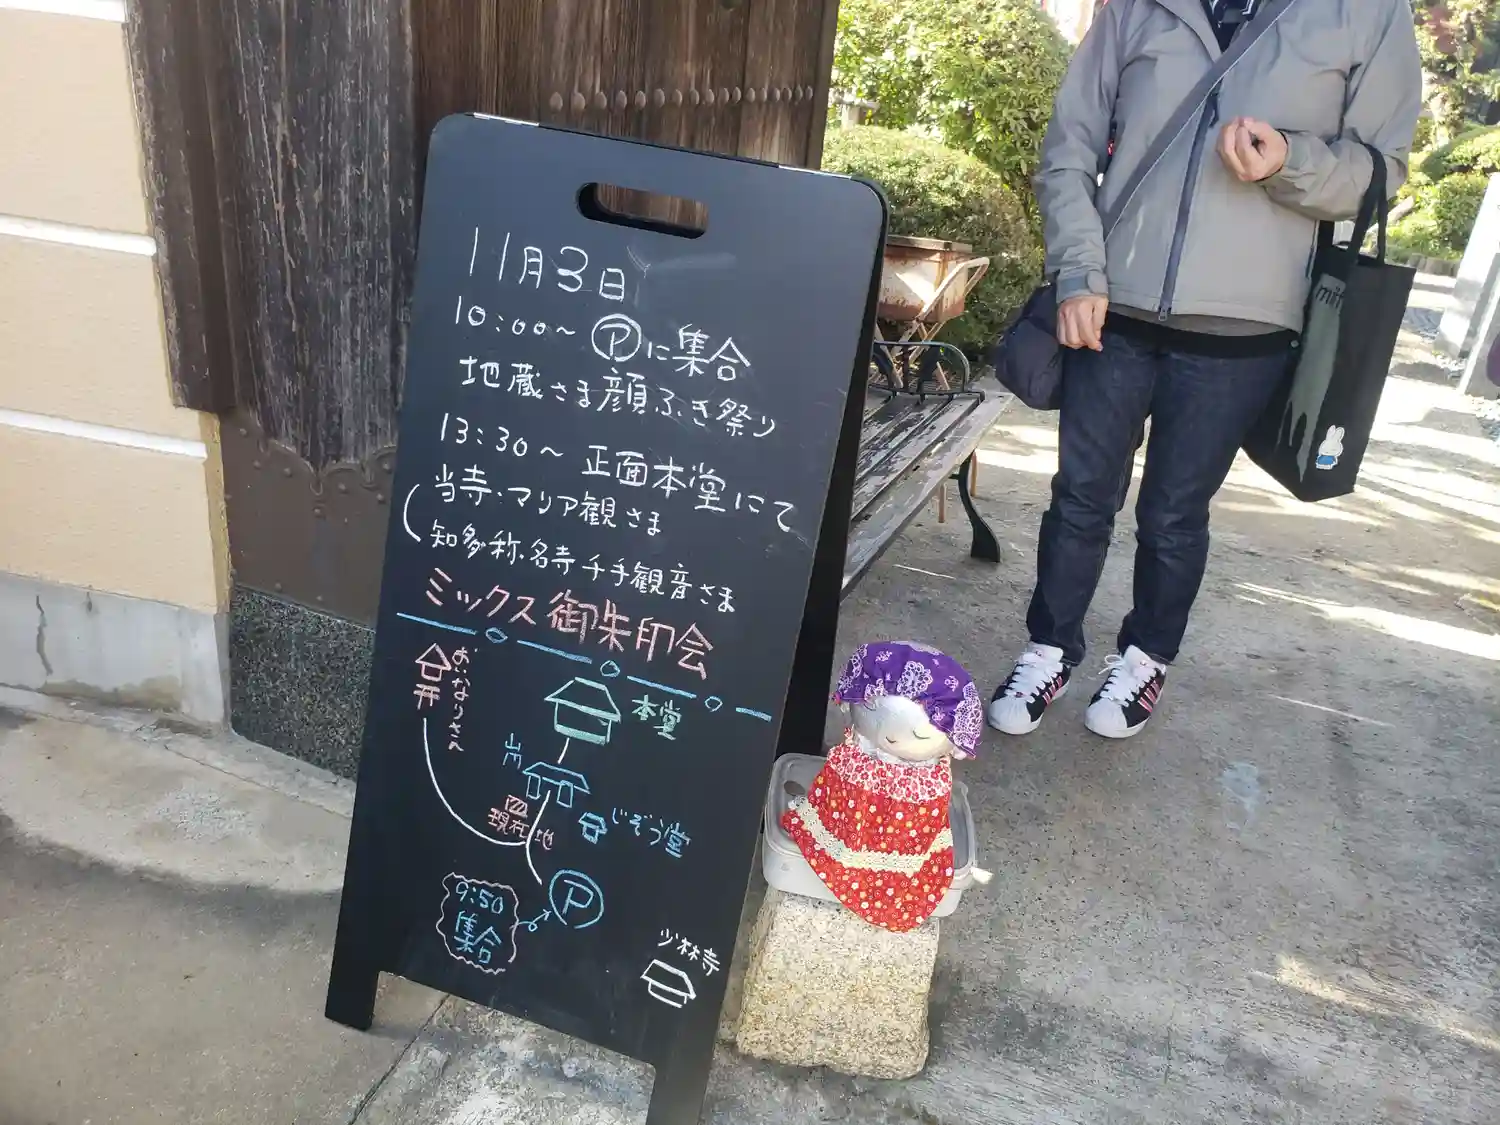 11月3日
10:00~ Ⓟに集合
地蔵さま顔ふき祭り
13:30~ 正面本堂にて
当寺・マリア観さま
知多称名寺千手観音さま
ミックス御朱印会
おいなりさん
本堂
山門
現在地
じぞう堂
9:50
集合
P
少林寺
mif